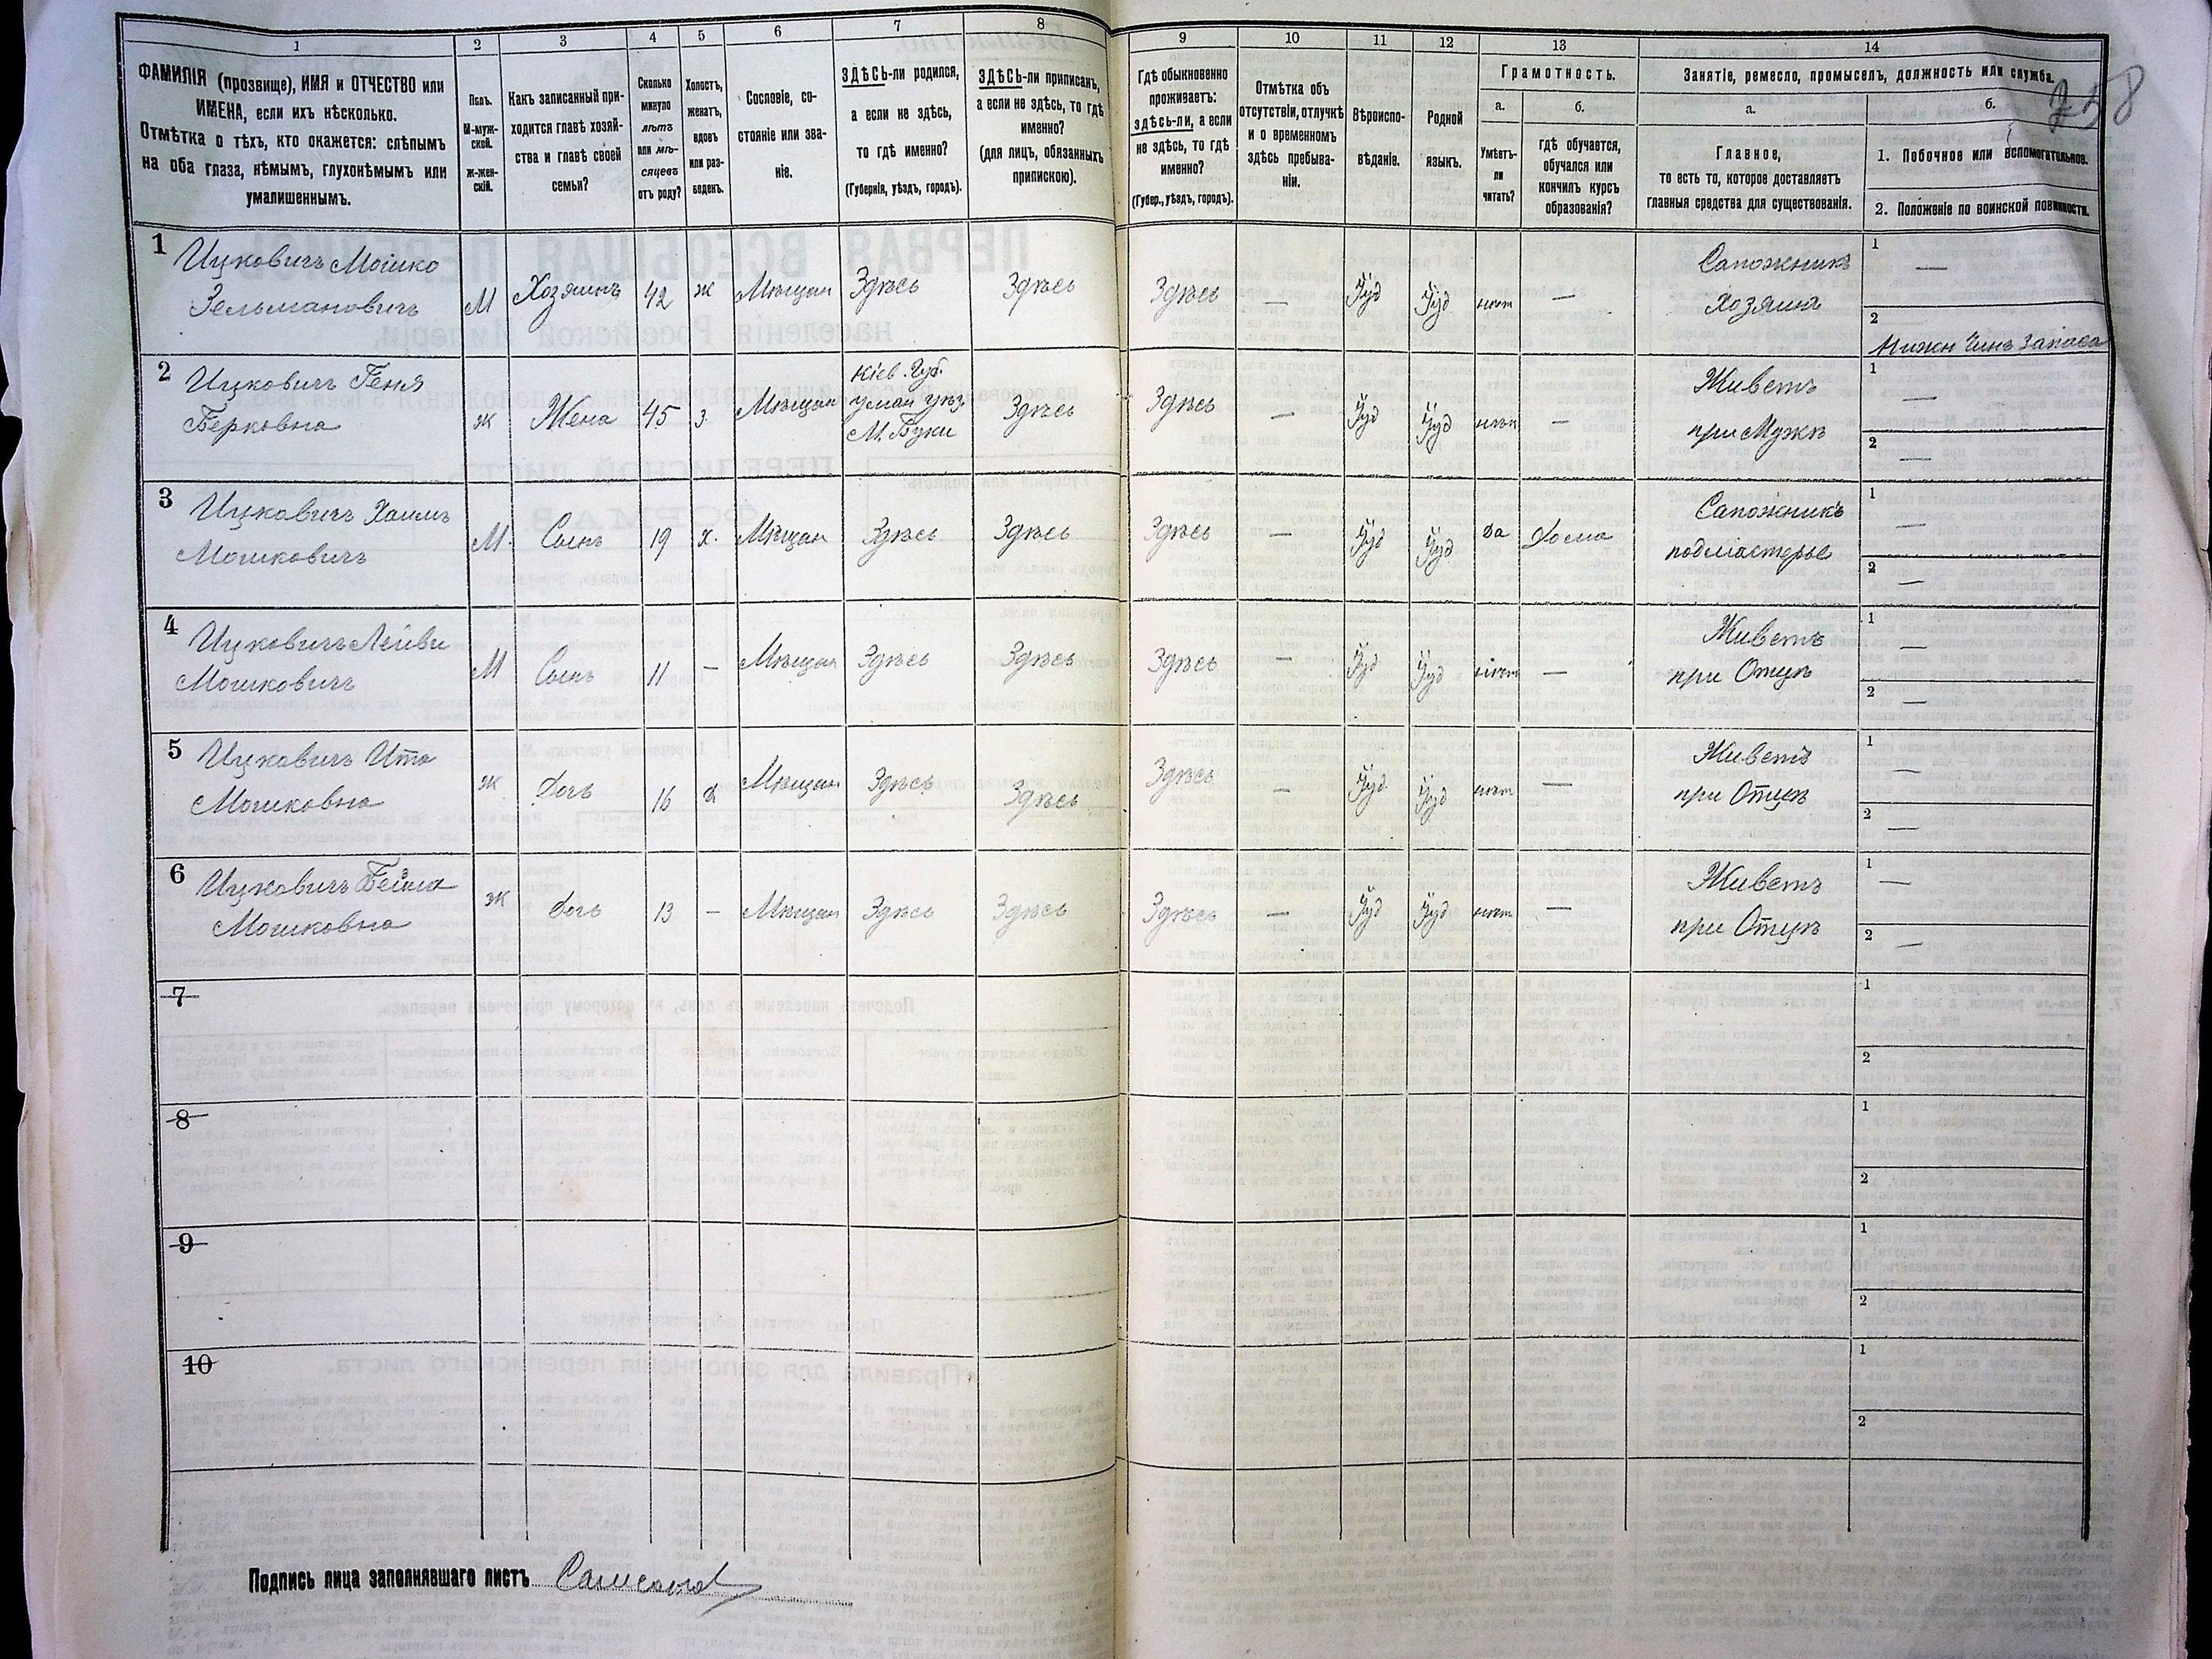 1 2 3 4 5 6 7 8 9 10 11 12 13 14
ФАМИЛІЯ (прозвище), ИМЯ и ОТЧЕСТВО или
ИМЕНА, если ихъ нѣсколько.
Отмѣтка о тѣхъ, кто окажется: слѣпымъ
на оба глаза, нѣмымъ, глухонѣмымъ или
умалишеннымъ.
Полъ.
М-муж-
ской.
Ж-жен-
скій.
Какъ записанный при-
ходится главѣ хозяй-
ства и главѣ своей
семьи?
Сколько
минуло
лѣтъ
или мѣ-
сяцевъ
отъ роду?
Холостъ,
женатъ,
вдовъ
или раз-
веденъ.
Сословіе, со-
стояніе или зва-
ніе.
ЗДѢСЬ-ли родился,
а если не здѣсь,
то гдѣ именно?
(Губернія, уѣздъ, городъ).
ЗДѢСЬ-ли приписанъ,
а если не здѣсь, то гдѣ
именно?
(для лицъ, обязанныхъ
припискою).
Гдѣ обыкновенно
проживаетъ:
здѣсь-ли, а если
не здѣсь, то гдѣ
именно?
(Губер., уѣздъ, городъ).
Отмѣтка объ
отсутствіи, отлучкѣ
и о временномъ
здѣсь пребыва-
ніи.
Вѣроиспо-
вѣданіе.
Родной
языкъ.
Грамотность.
а.
Умѣетъ-
ли
читать?
б.
гдѣ обучается,
обучался или
кончилъ курсъ
образованія?
Занятіе, ремесло, промыселъ, должность или служба.
а.
Главное,
то есть то, которое доставляетъ
главныя средства для существованія.
б.
1. Побочное или вспомогательное.
2. Положеніе по воинской повинности.
758
1 Ицковичъ Мошко
Зельмановичъ
М Хозяинъ 42 ж Мѣщан Здѣсь Здѣсь Здѣсь — Іуд Іуд нѣт —
Сапожникъ
Хозяинъ
1 —
2 Нижн Чинъ Запаса
2 Ицковичъ Геня
Берковна
ж Жена 45 з. Мѣщан
Кіев. Губ.
Уман уѣз
М. Буки
Здѣсь Здѣсь — Іуд Іуд нѣт —
Живетъ
при Мужѣ
1 —
2 —
3 Ицковичъ Хаимъ
Мошковичъ
М. Сынъ 19 х. Мѣщан Здѣсь Здѣсь Здѣсь — Іуд Іуд да Дома
Сапожникъ
подмастерье
1 —
2 —
4 Ицковичъ Лейви
Мошковичъ
М Сынъ 11 — Мѣщан Здѣсь Здѣсь Здѣсь — Іуд Іуд нѣт —
Живетъ
при Отцѣ
1 —
2 —
5 Ицковичъ Ита
Мошковна
ж Дочь 16 д Мѣщан Здѣсь Здѣсь Здѣсь — Іуд Іуд нѣт —
Живетъ
при Отцѣ
1 —
2 —
6 Ицковичъ Бейла
Мошковна
ж Дочь 13 — Мѣщан Здѣсь Здѣсь Здѣсь — Іуд Іуд нѣт —
Живетъ
при Отцѣ
1 —
2 —
7
1
2
8
1
2
9
1
2
10
1
2
Подпись лица заполнявшаго листъ